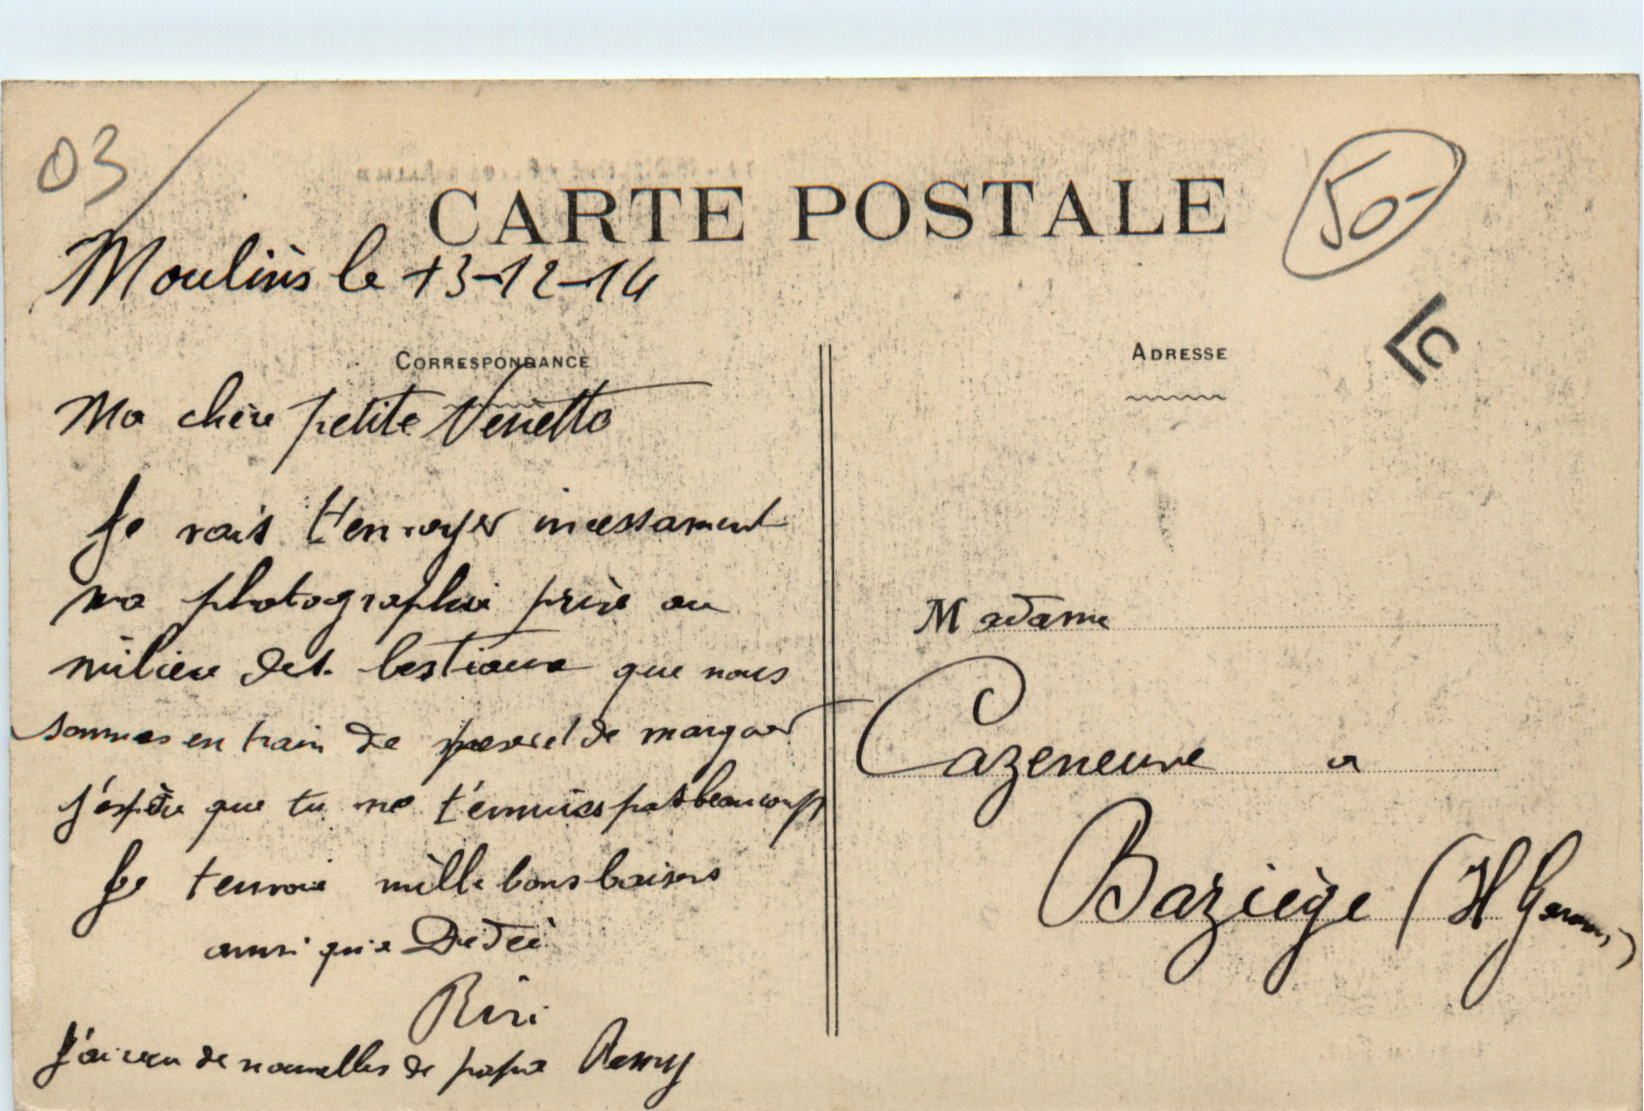 03
CARTE POSTALE
50-
Moulins le 13-12-14
CORRESPONDANCE
Ma chère petite Nenette
Je vais t'envoyer incessament
ma photographie prise au
milieu des bestiaux que nous
sommes en train de peser et de marquer
j'espère que tu ne t'ennuies pas beaucoup
Je t'envoie mille bons baisers
ainsi qu'a Dédée
Riri
J'ai recu de nouvelles de papa Remy
ADRESSE
LC
Madame
Cazeneuve a
Baziège (H Garonne)